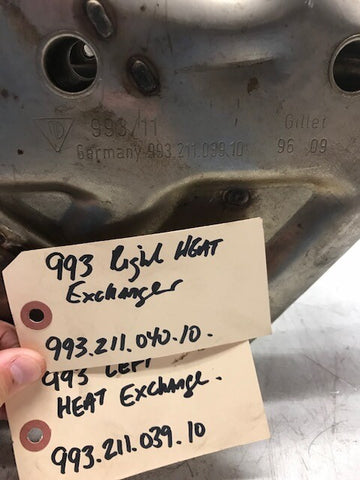 993/11 Giller
Germany 993.211.039.10 96 09
993 Right HEAT
Exchanger
993.211.040.10.
993 LEFT
HEAT Exchange.
993.211.039.10